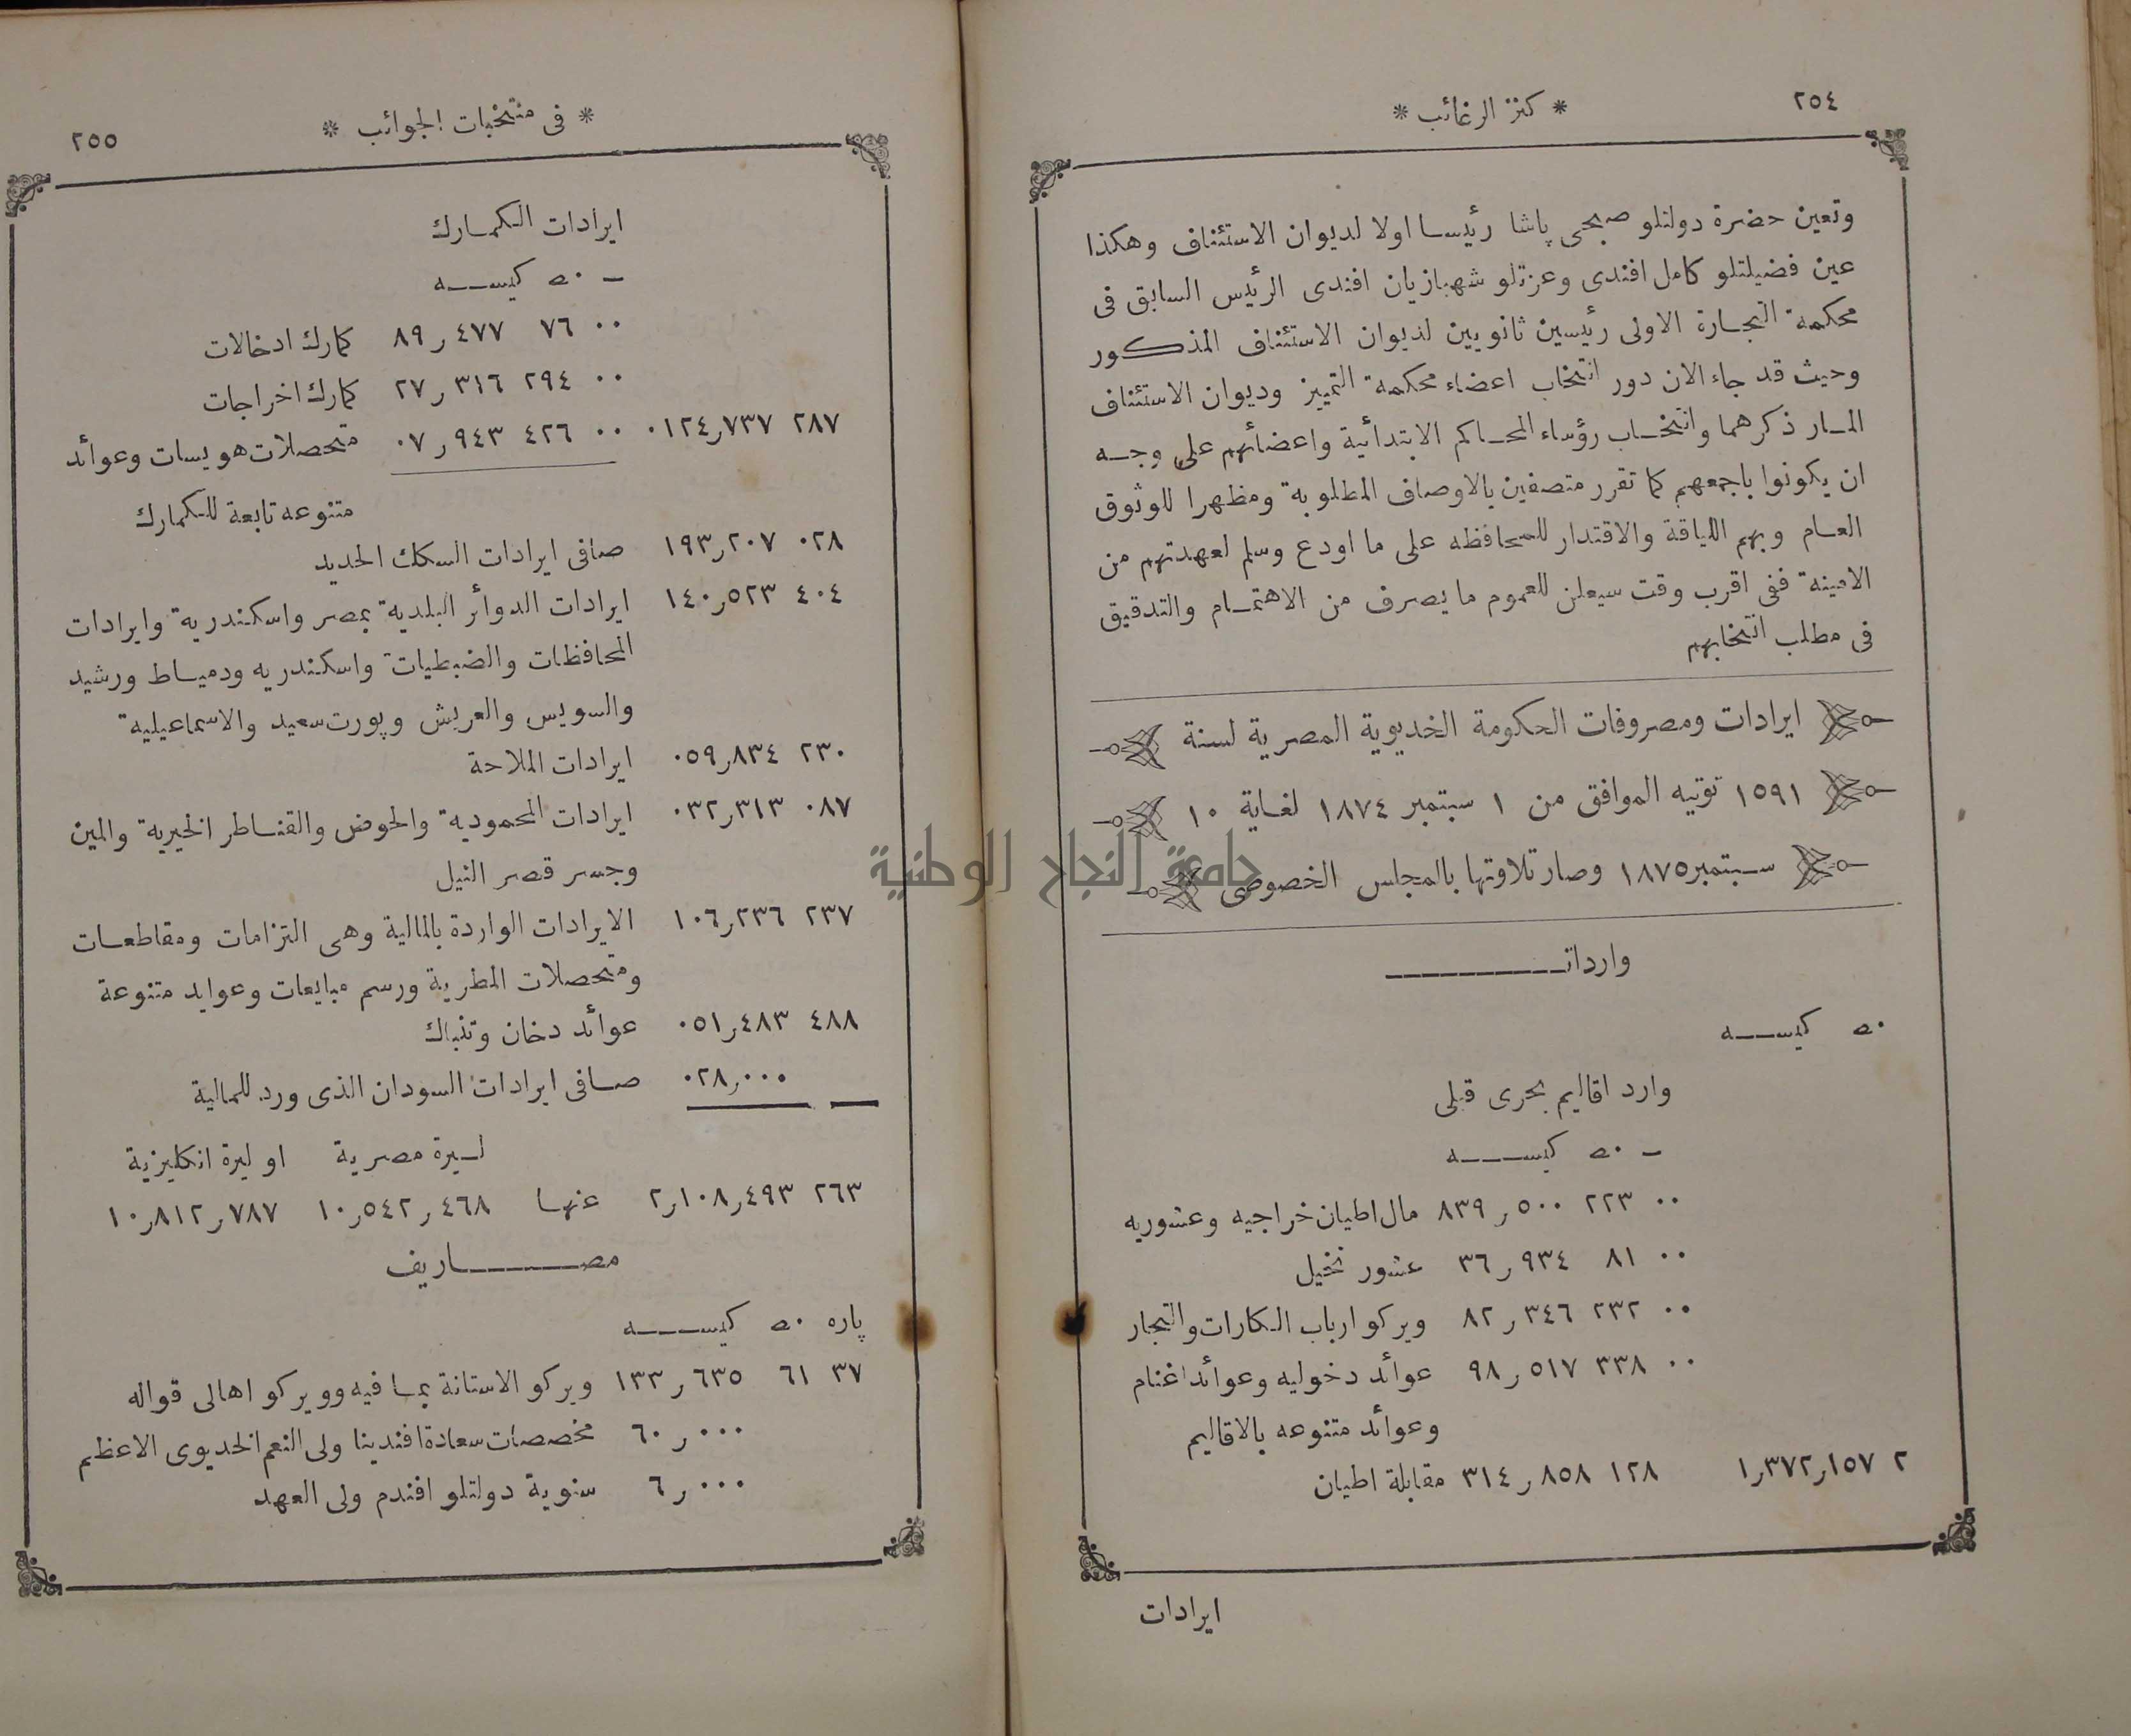 ٢٥٤
* كنز الرغائب *
وتعين حضرة دولتلو صبحى پاشا رئيسا اولا لديوان الاستئناف وهكذا
عين فضيلتلو كامل افندى وعزتلو شهبازيان افندى الرئيس السابق فى
محكمة التجارة الاولى رئيسين ثانويين لديوان الاستئناف المذكور
وحيث قد جاء الان دور انتخاب اعضاء محكمة التمييز وديوان الاستئناف
المار ذكرهما وانتخاب رؤساء المحاكم الابتدائية واعضائهم على وجه
ان يكونوا باجمعهم كما تقرر متصفين بالاوصاف المطلوبة ومظهرا للوثوق
العام وبهم اللياقة والاقتدار للمحافظه على ما اودع وسلم لعهدتهم من
الامينة ففى اقرب وقت سيعلن للعموم ما يصرف من الاهتمام والتدقيق
فى مطلب انتخابهم
ايرادات ومصروفات الحكومة الخديوية المصرية لسنة
١٥٩١ توتيه الموافق من ١ سبتمبر ١٨٧٤ لغاية ١٠
سبتمبر ١٨٧٥ وصار تلاوتها بالمجلس الخصوصى
جامعة النجاح الوطنية
واردات
كيسه
وارد اقاليم بحرى قبلى
كيسه
٠٠ ٢٢٣ ٥٠٠ر٨٣٩ مال اطيان خراجيه وعشوريه
٠٠ ٨١ ٩٣٤ر٣٦ عشور نخيل
٠٠ ٢٣٢ ٣٤٦ر٨٢ ويركو ارباب الكارات والتجار
٠٠ ٣٣٨ ٥١٧ر٩٨ عوائد دخوليه وعوائد اغنام
وعوائد متنوعه بالاقاليم
٢ ١٥٧ر٣٧٢ر١ ١٢٨ ٨٥٨ر٣١٤ مقابلة اطيان
ايرادات
* فى منتخبات الجوائب *
٢٥٥
ايرادات الكمارك
كيسه
٠٠ ٧٦ ٤٧٧ر٨٩ كمارك ادخالات
٠٠ ٢٩٤ ٣١٦ر٢٧ كمارك اخراجات
٢٨٧ ٧٣٧ر١٢٤٠ ٠٠ ٤٢٦ ٩٤٣ر٠٧ متحصلات هويسات وعوائد
متنوعه تابعة للكمارك
٠٢٨ ٢٠٧ر١٩٣ صافى ايرادات السكك الحديد
٤٠٤ ٥٢٣ر١٤٠ ايرادات الدوائر البلدية بمصر واسكندرية وايرادات
المحافظات والضبطيات واسكندريه ودمياط ورشيد
والسويس والعريش وپورت سعيد والاسماعيلية
٢٣٠ ٨٣٤ر٠٥٩ ايرادات الملاحة
٠٨٧ ٣١٣ر٠٣٢ ايرادات المحمودية والحوض والقناطر الخيرية والمين
وجسر قصر النيل
٢٣٧ ٢٣٦ر١٠٦ الايرادات الواردة بالمالية وهى التزامات ومقاطعات
ومتحصلات المطرية ورسم مبايعات وعوايد متنوعة
٤٨٨ ٤٨٣ر٠٥١ عوائد دخان وتنباك
٠٠٠ر٠٢٨ صافى ايرادات السودان الذى ورد للمالية
ليرة مصرية او ليرة انكليزية
٢٦٣ ٤٩٣ر١٠٨ر٢ عنها ٤٦٨ر٥٤٢ر١٠ ٧٨٧ر٨١٢ر١٠
مصاريف
پاره كيسه
٣٧ ٦١ ٦٣٥ر١٣٣ ويركو الاستانة بما فيه وويركو اهالى قواله
٠٠٠ر٦٠ مخصصات سعادة افندينا ولى النعم الخديوى الاعظم
٠٠٠ر٦ سنوية دولتلو افندم ولى العهد